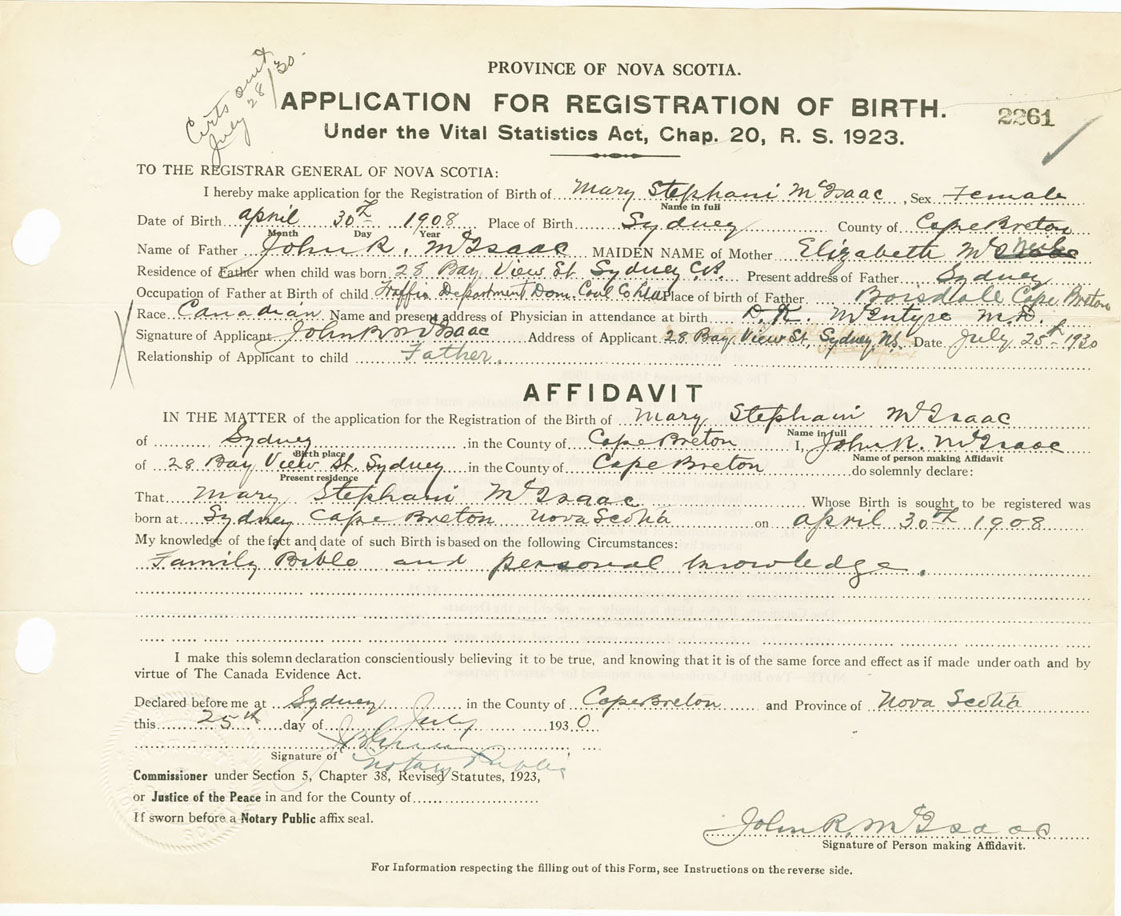 Certs out
July 28/30.
PROVINCE OF NOVA SCOTIA.
APPLICATION FOR REGISTRATION OF BIRTH.
2261
Under the Vital Statistics Act, Chap. 20, R. S. 1923.
TO THE REGISTRAR GENERAL OF NOVA SCOTIA:
I hereby make application for the Registration of Birth of Mary Stephani McIsaac, Sex Female
Name in full
Date of Birth April 30th 1908 Place of Birth Sydney County of Cape Breton
Month Day Year
Name of Father John R. McIsaac MAIDEN NAME of Mother Elizabeth
Residence of Father when child was born 28 Bay View St. Sydney C.B. Present address of Father Sydney
Occupation of Father at Birth of child Traffic Department Dom. Coal Co Place of birth of Father Boisdale Cape Breton
Race Canadian Name and present address of Physician in attendance at birth D. K. McIntyre M.D.
Signature of Applicant John R McIsaac Address of Applicant 28 Bay View St, Sydney, N.S. Date July 25th 1930
Relationship of Applicant to child Father.
AFFIDAVIT
IN THE MATTER of the application for the Registration of the Birth of Mary Stephani McIsaac
Name in full
of Sydney in the County of Cape Breton I, John R. McIsaac
Birth place Name of person making Affidavit
of 28 Bay View St. Sydney in the County of Cape Breton do solemnly declare:
Present residence
That Mary Stephani McIsaac Whose Birth is sought to be registered was
born at Sydney Cape Breton Nova Scotia on April 30th 1908
My knowledge of the fact and date of such Birth is based on the following Circumstances:
Family Bible and personal knowledge.
I make this solemn declaration conscientiously believing it to be true, and knowing that it is of the same force and effect as if made under oath and by
virtue of The Canada Evidence Act.
Declared before me at Sydney in the County of Cape Breton and Province of Nova Scotia
this 25th day of July 1930
Signature of Notary Public
Commissioner under Section 5, Chapter 38, Revised Statutes, 1923,
or Justice of the Peace in and for the County of
If sworn before a Notary Public affix seal.
John R. McIsaac
Signature of Person making Affidavit.
For Information respecting the filling out of this Form, see Instructions on the reverse side.